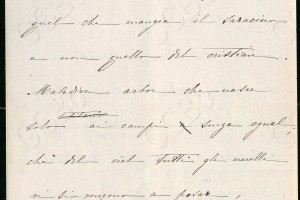 quel che mangia il saracino
e non quello del cristiano.
Maledico arbor che nasce
solo ai campi senza egual,
chè del ciel tutti gli uccelli
vi si vengono a posar,